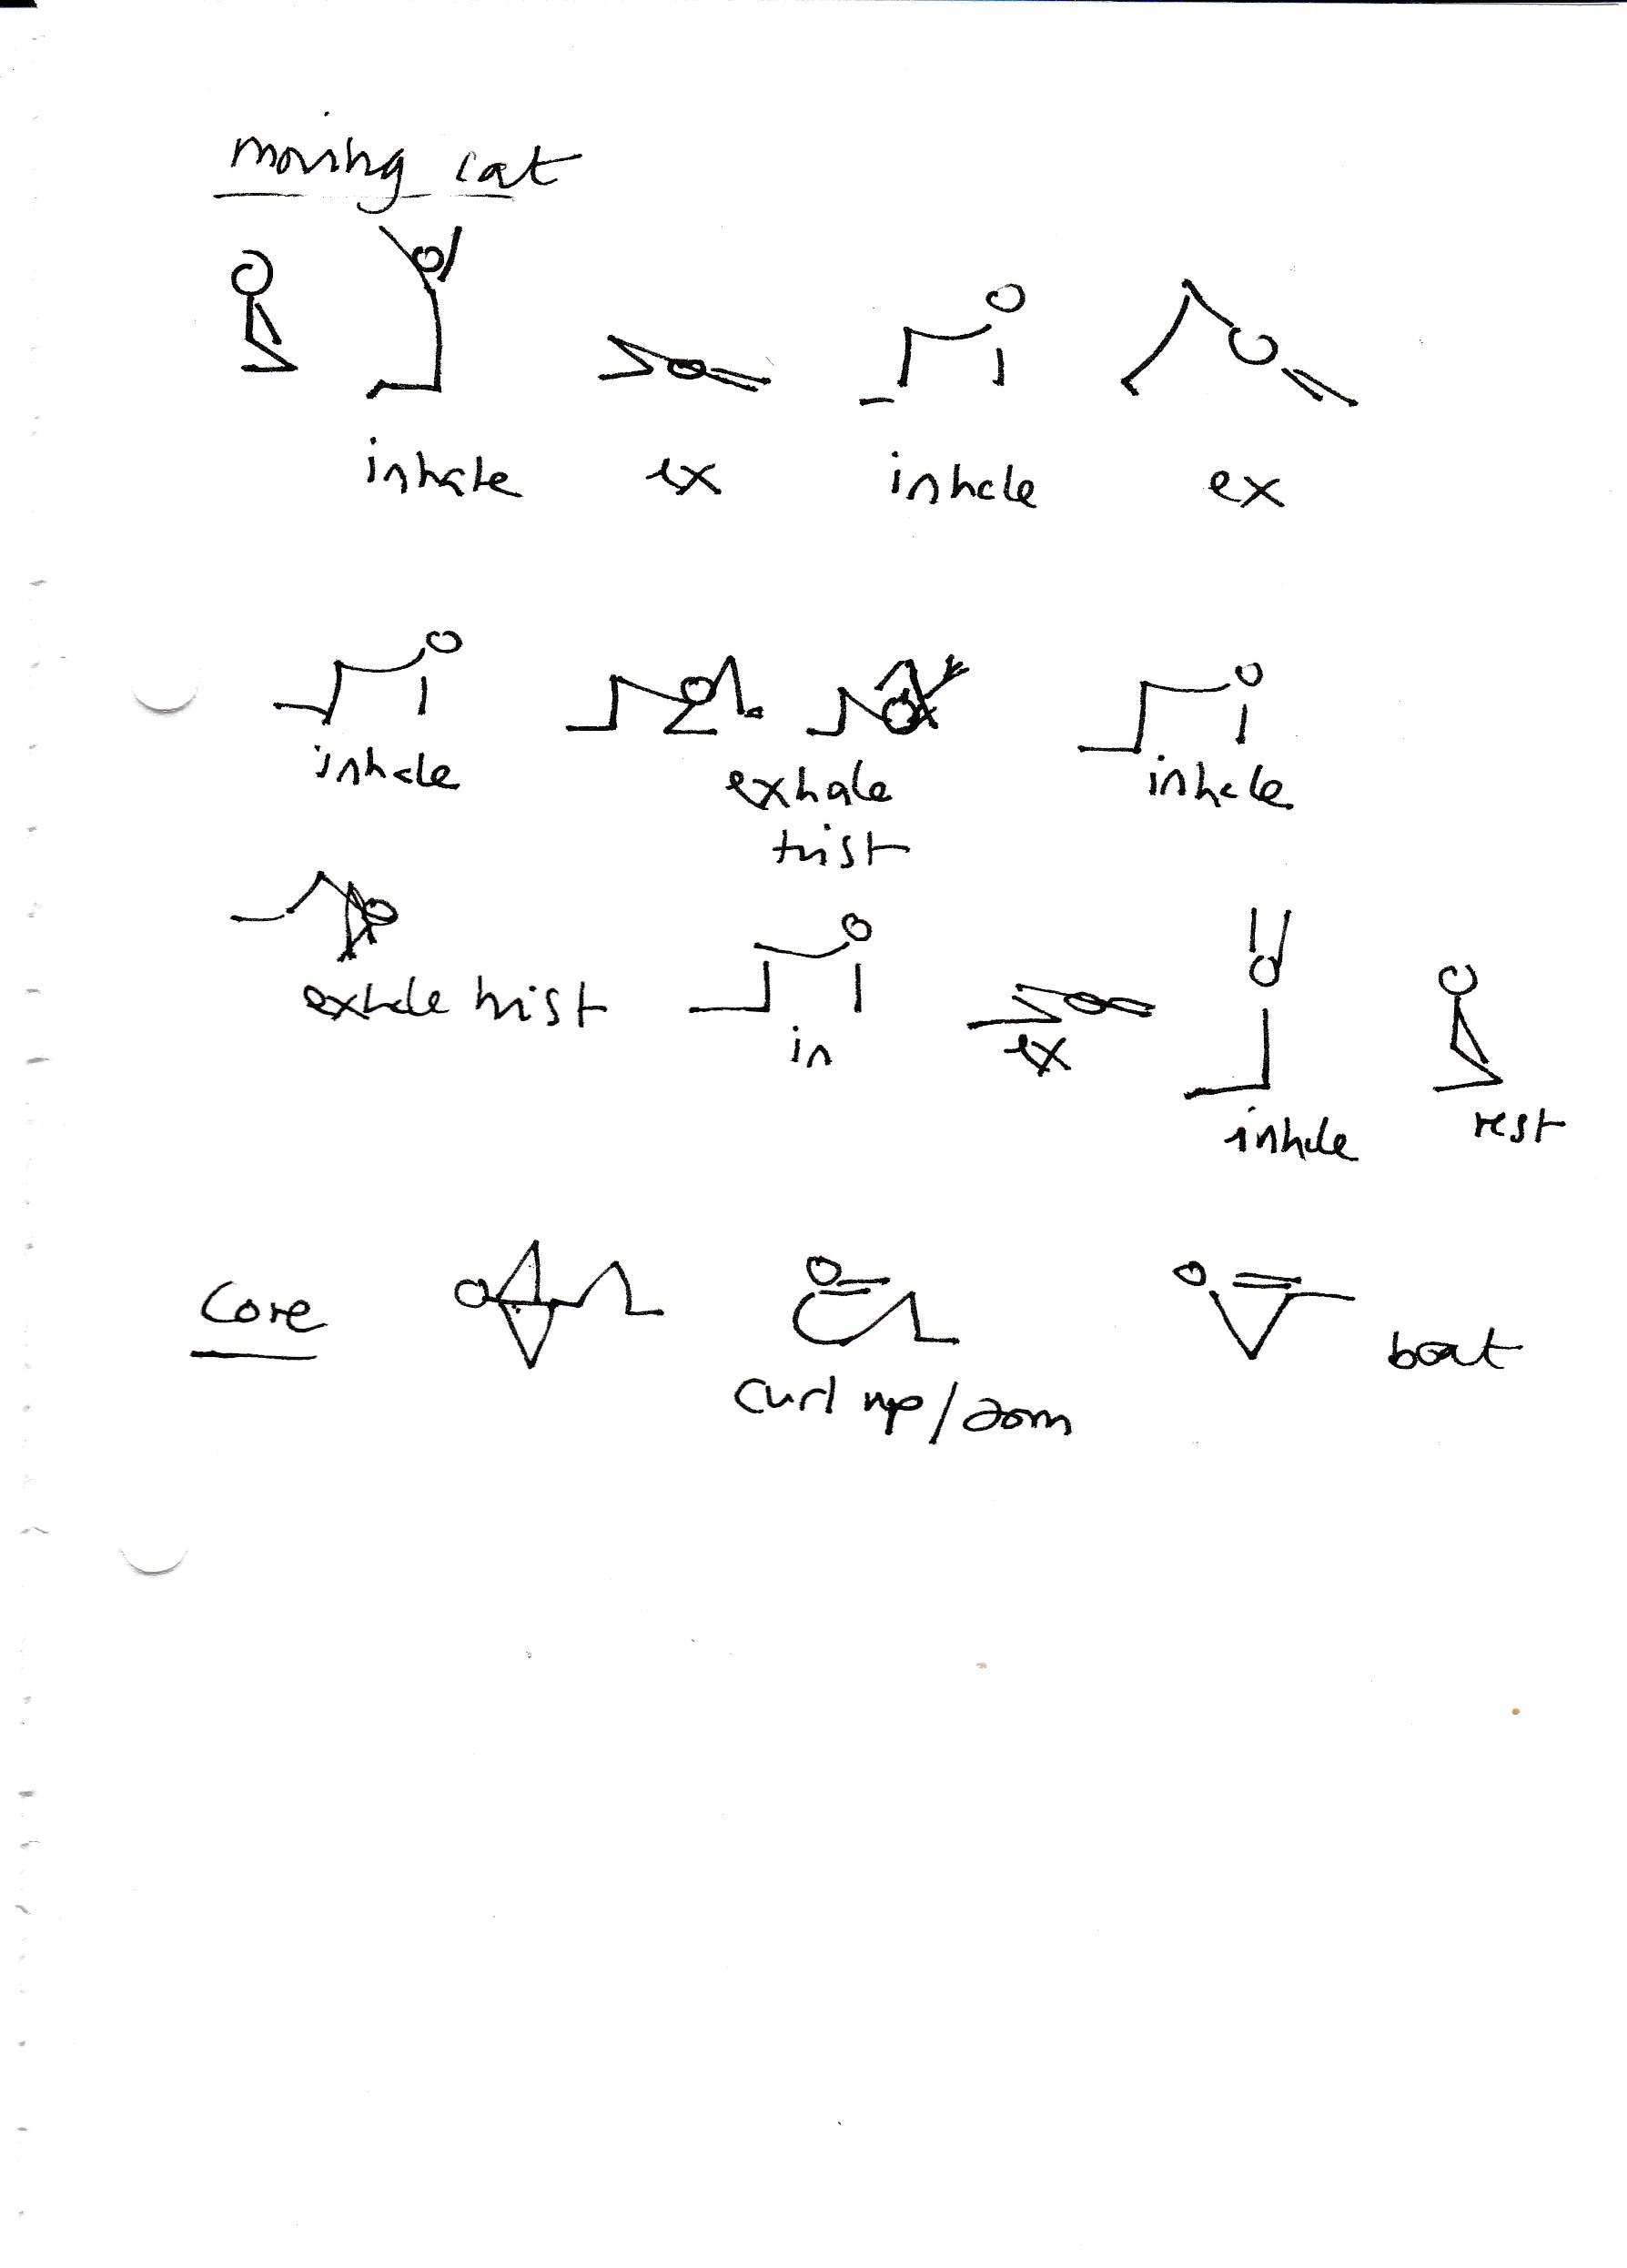 moving cat
inhale ex inhale ex
inhale exhale inhale
twist
exhale twist in ex inhale rest
Core curl up / down boat